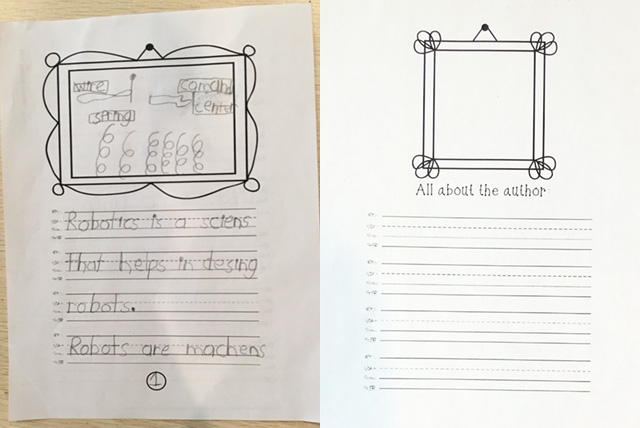 wire
comand
center
spring
Robotics is a sciens
that helps in desing
robots.
Robots are machens
1
All about the author: